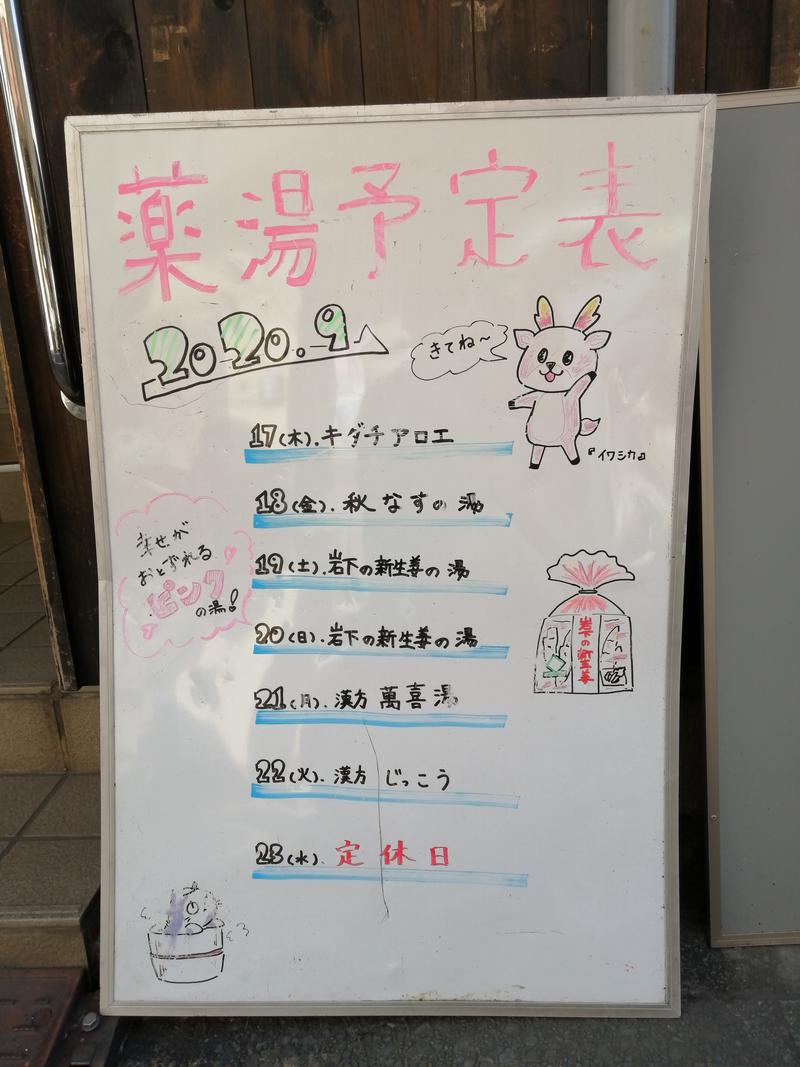 薬湯予定表
2020.9
きてね〜
『イワシカ』
17(木).キダチアロエ
18(金).秋なすの湯
幸せが
おとずれる
ピンク
の湯!
19(土).岩下の新生姜の湯
20(日).岩下の新生姜の湯
岩下の新生姜
21(月).漢方 萬喜湯
22(火).漢方 じっこう
23(水).定休日